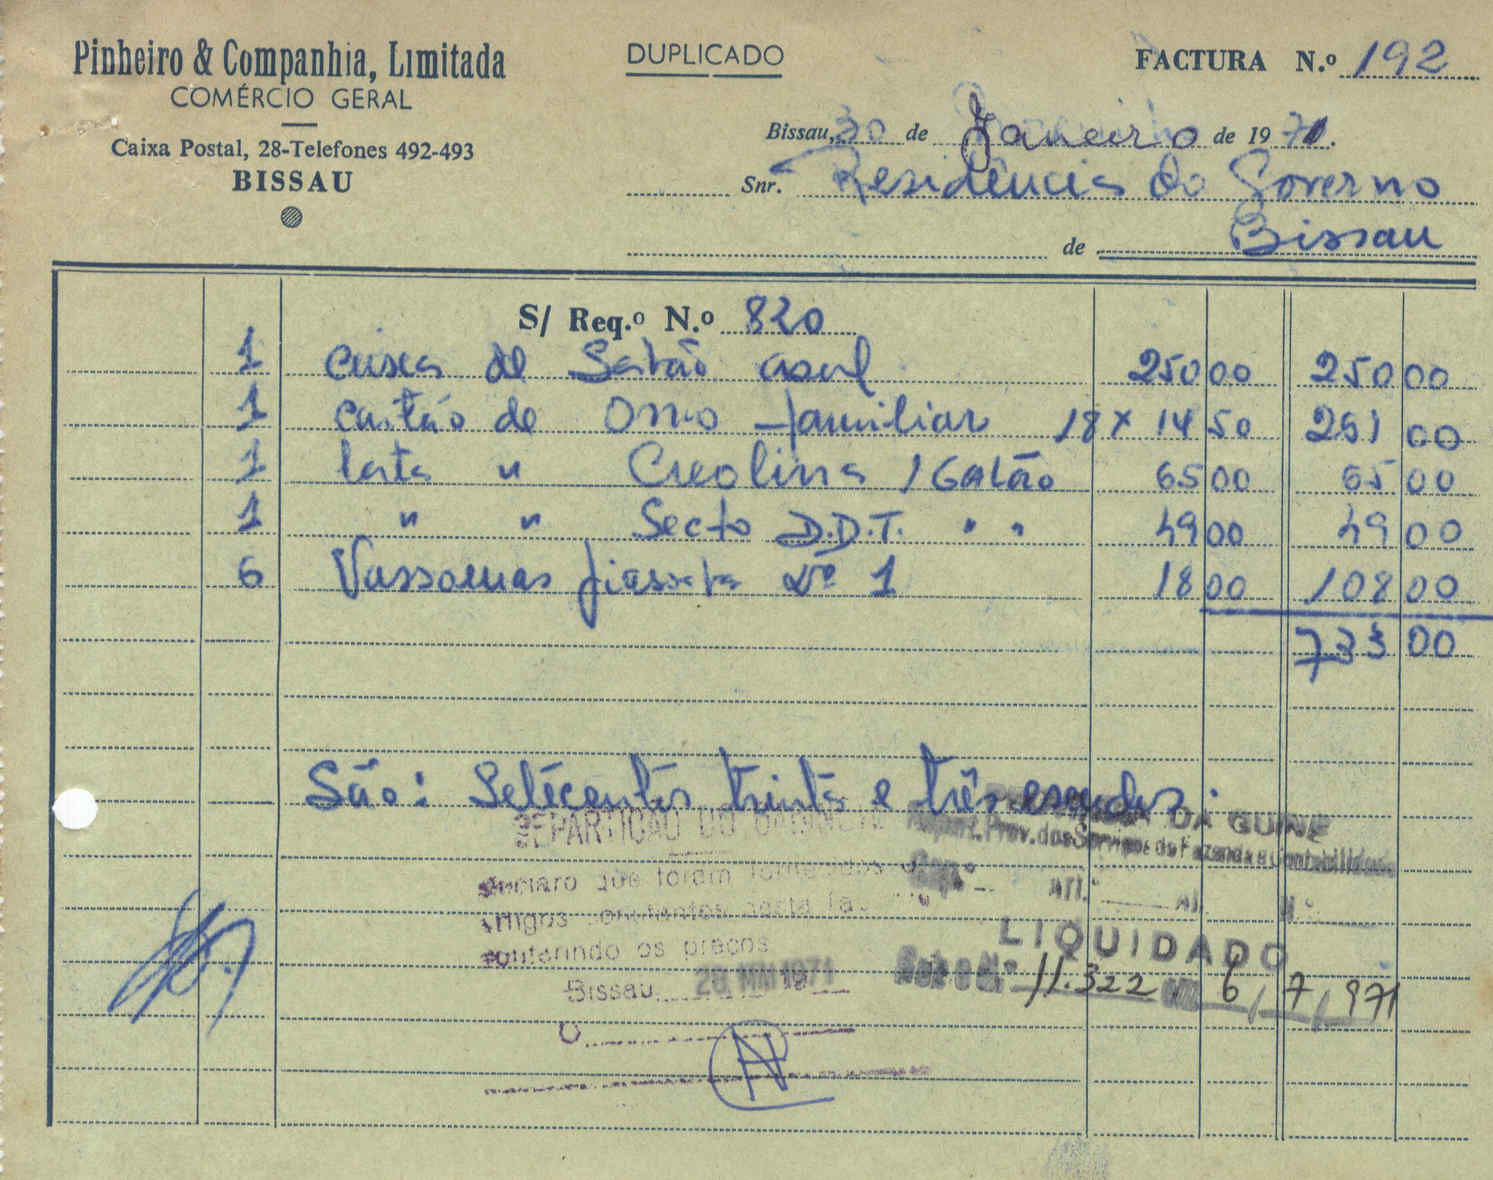 Pinheiro & Companhia, Limitada
COMÉRCIO GERAL
Caixa Postal, 28-Telefones 492-493
BISSAU
DUPLICADO
FACTURA N.º 192
Bissau, 30 de Janeiro de 1971.
Snr. Residência do Governo
de Bissau
S/ Req.º N.º 820
1 caixa de Sabão azul 250 00 250 00
1 cartão de OMO familiar 18 x 14 50 261 00
1 lata " Creolina 1 Galão 65 00 65 00
1 " " Secto D.D.T. " " 49 00 49 00
6 Vassouras piassaba Nº 1 18 00 108 00
733 00
São: Setecentos trinta e três escudos.
REPARTIÇÃO DO GABINETE
Declaro que foram fornecidos os
artigos constantes nesta
conferindo os preços
Bissau, 28 MAI 1971
O
DA GUINÉ
Repart. Prov. dos Serviços de Fazenda e Contabilidade
Cap.º Art.º Al. N.º
LIQUIDADO
11.322 6/7/971